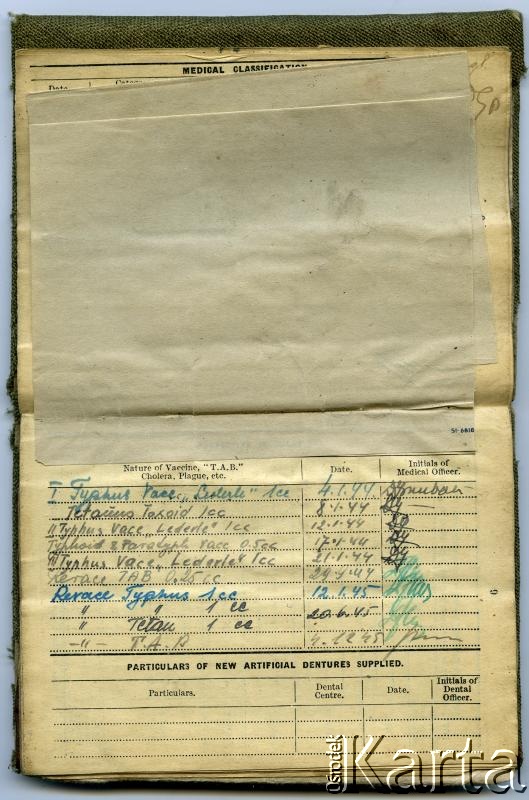 MEDICAL CLASSIFICATION
Date
51-6818
Nature of Vaccine, "T.A.B." Cholera, Plague, etc. Date. Initials of Medical Officer.
I Typhus Vacc. „Lederle" 1cc 4.1.44
Tetanus Toxoid 1cc 8.1.44
II Typhus Vacc „Lederle" 1cc 12.1.44
Typhoid & Paratyph Vacc 0.5cc 17.1.44
III Typhus Vacc „Lederle" 1cc 21.1.44
Revacc TAB 0.25cc 29.4.44
Revacc Typhus 1cc 12.1.45
" " 1 cc 20.6.45
" Tetan 1 cc
-"- T.A.B 4.12.45
PARTICULARS OF NEW ARTIFICIAL DENTURES SUPPLIED.
Particulars. Dental Centre. Date. Initials of Dental Officer.
9
Ośrodek Karta